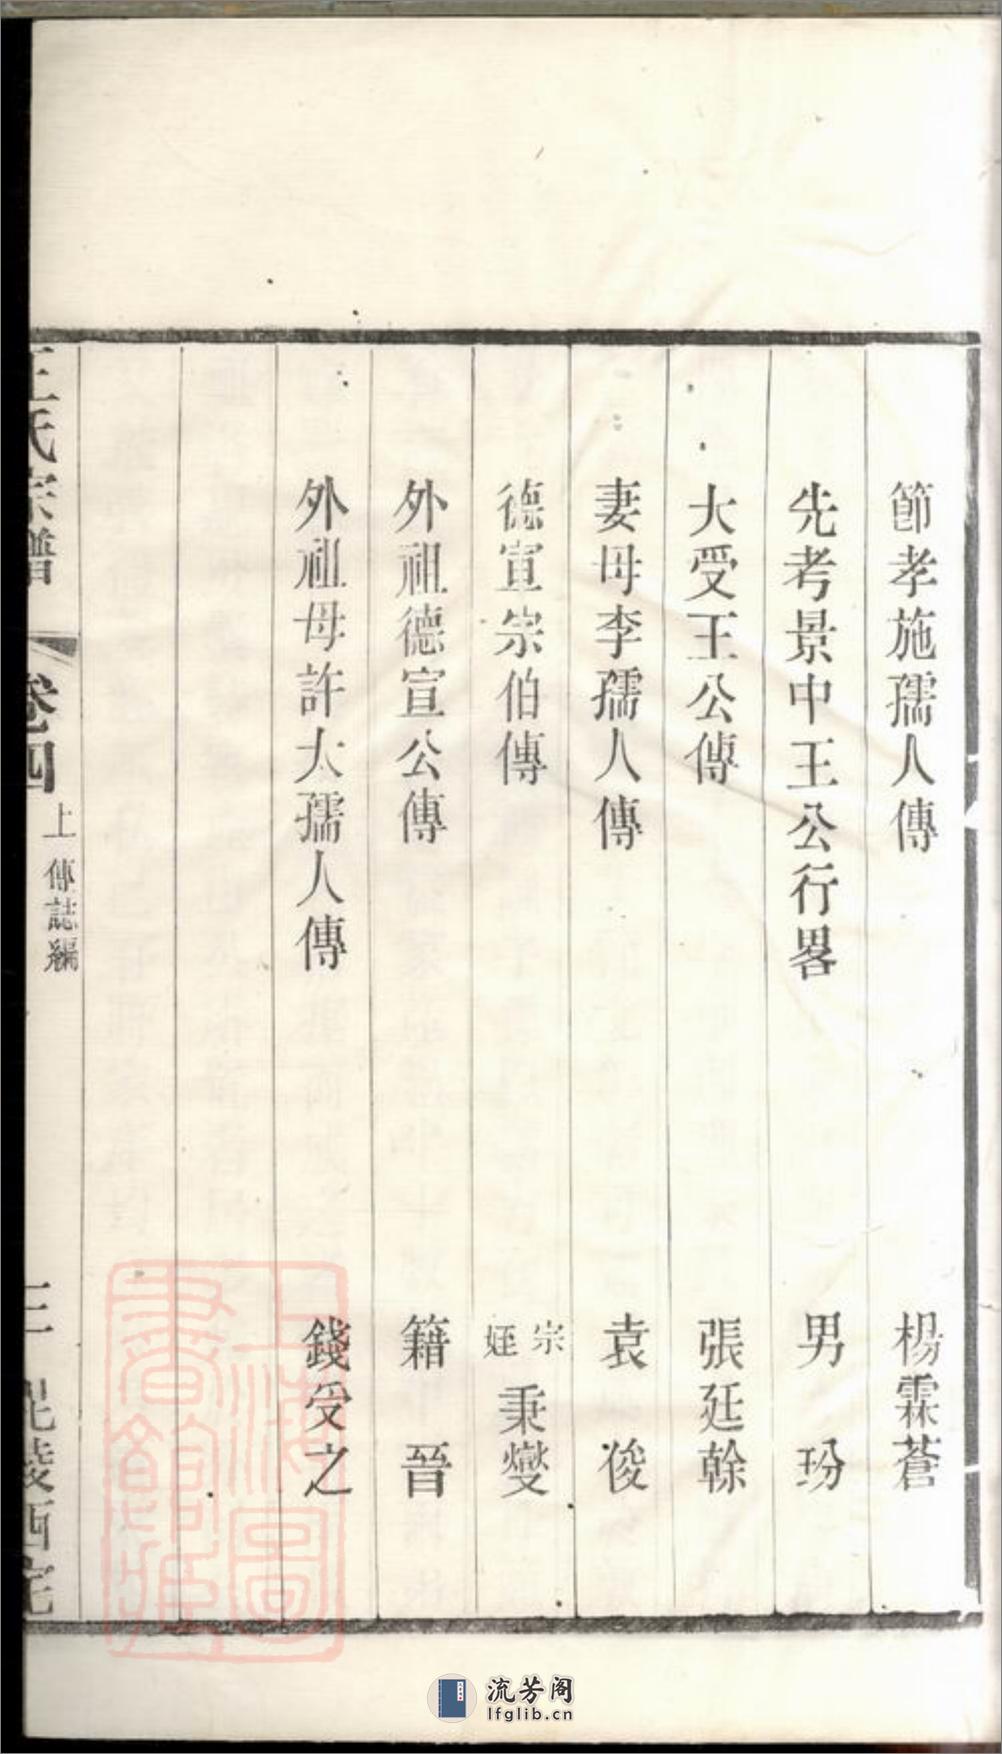 節孝施孺人傳 楊霖蒼
先考景中王公行畧 男 玢
大受王公傳 張廷榦
妻母李孺人傳 袁俊
德宣宗伯傳 宗姪 秉燮
外祖德宣公傳 籍晉
外祖母許太孺人傳 錢受之
王氏宗譜 卷四 上 傳誌編 三 毘陵西宅
上海圖書館藏
流芳阁
lfglib.cn